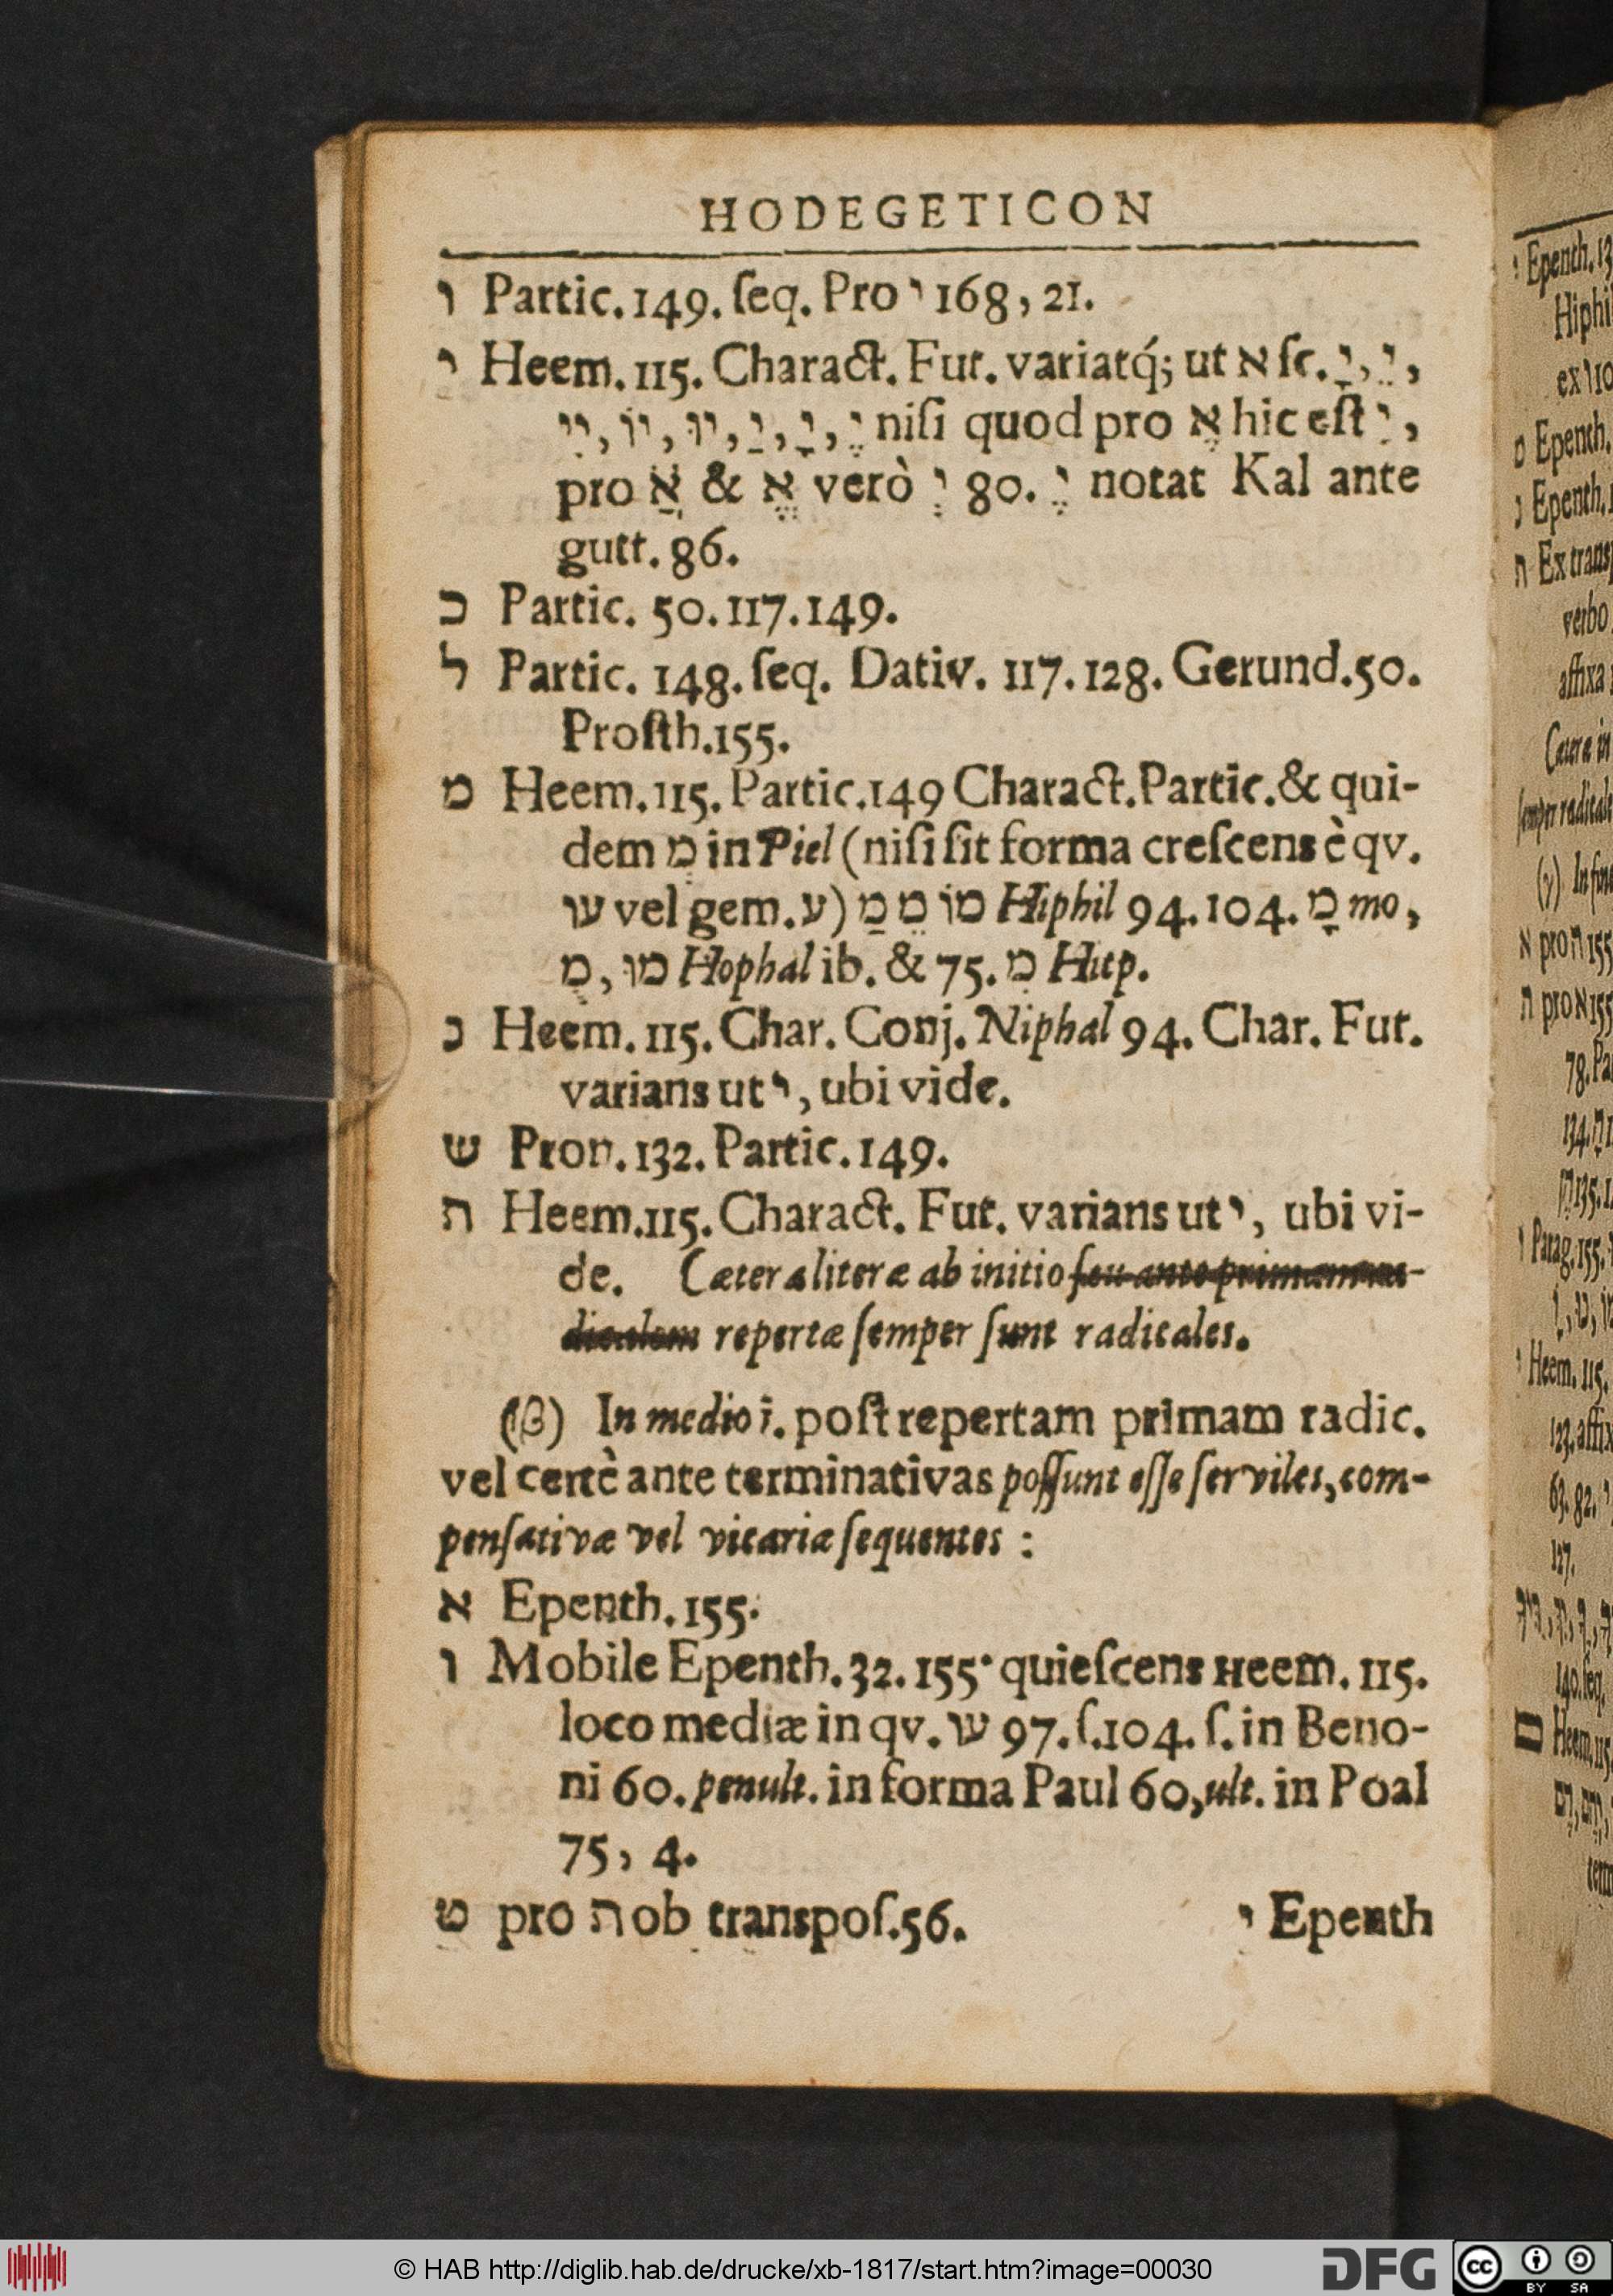 HODEGETICON
ו Partic. 149. ſeq. Pro י 168, 21.
י Heem. 115. Charact. Fut. variatq́; ut א ſc. יָ, יֵ,
יי, יוֹ, יוּ, יַ, יָ, יֶ niſi quod pro אֶ hic eſt יִ,
pro אֲ & אֱ verò יְ 80. יֶ notat Kal ante
gutt. 86.
כ Partic. 50. 117. 149.
ל Partic. 148. ſeq. Dativ. 117. 128. Gerund. 50.
Proſth. 155.
מ Heem. 115. Partic. 149 Charact. Partic. & qui-
dem מְ in Piel (niſi ſit forma creſcens è qv.
עו vel gem. ע) מַ מֵ מוֹ Hiphil 94. 104. מָ mo,
מֻ, מוּ Hophal ib. & 75. מִ Hitp.
נ Heem. 115. Char. Conj. Niphal 94. Char. Fut.
varians ut י, ubi vide.
ש Pron. 132. Partic. 149.
ת Heem. 115. Charact. Fut. varians ut י, ubi vi-
de. Cæteræ literæ ab initio ſeu ante primam ra-
dicalem repertæ ſemper ſunt radicales.
(β) In medio i. poſt repertam primam radic.
vel certè ante terminativas poſſunt eſſe ſerviles, com-
penſativæ vel vicariæ ſequentes :
א Epenth. 155.
ו Mobile Epenth. 32. 155. quieſcens Heem. 115.
loco mediæ in qv. עו 97. ſ. 104. ſ. in Beno-
ni 60. penult. in forma Paul 60, ult. in Poal
75, 4.
ט pro ת ob transpoſ. 56.
י Epenth
© HAB http://diglib.hab.de/drucke/xb-1817/start.htm?image=00030
DFG
cc
BY SA